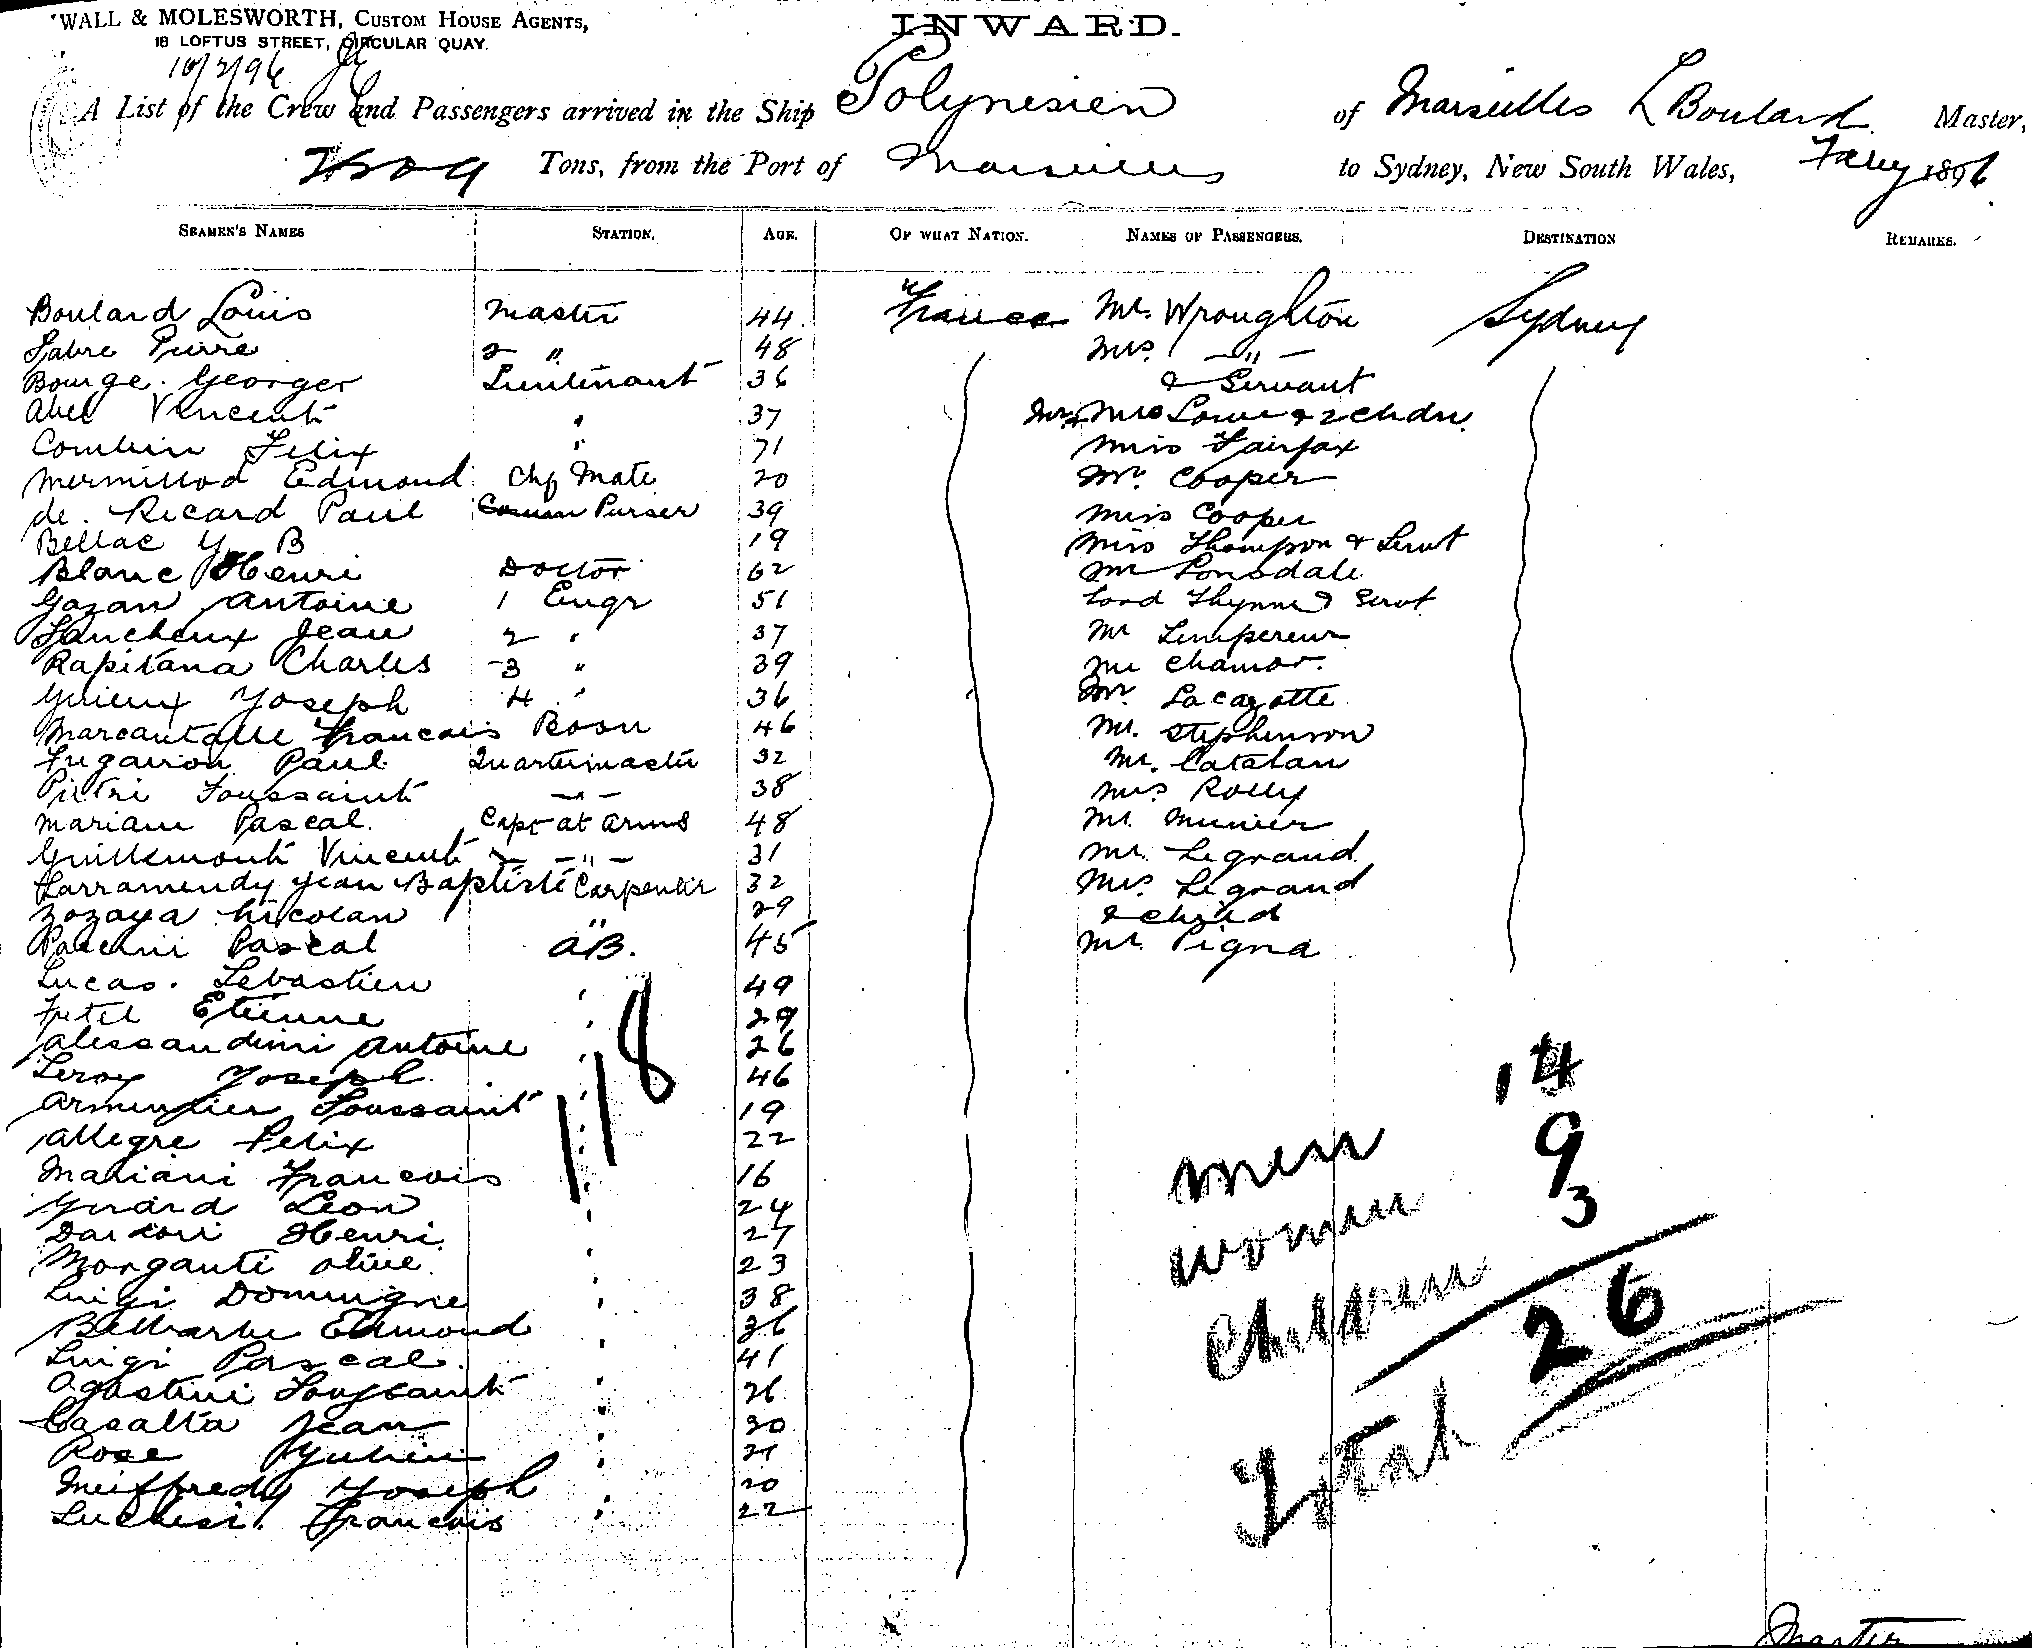 WALL & MOLESWORTH, CUSTOM HOUSE AGENTS,
18 LOFTUS STREET, CIRCULAR QUAY.
INWARD.
10/2/96
A List of the Crew and Passengers arrived in the Ship Polynesien of Marseilles L Boulard Master,
Tons, from the Port of Marseilles to Sydney, New South Wales, Faby 1896
SEAMEN'S NAMES STATION. AGE. OF WHAT NATION. NAMES OF PASSENGERS. DESTINATION REMARKS.
Boulard Louis Master 44 France Mr. Wroughton Sydney
Fabre Pierre 2 " 48 Mrs. - " -
Bourge. Georges Lieutenant 36 & Servant
Abel Vincent " 37 Mr & Mrs Lowe & 2 chdn.
Felix " 71 Miss Fairfax
Mermillod Edmond Chf Mate 20 Mr. Cooper
de. Ricard Paul Purser 39 Miss Cooper
Bellac Y. B 19 Miss Thompson & Servt
Blanc Henri Doctor 62 Mr Ponsdale
Gazan Antoine 1 Engr 51 Lord Thynne & Servt
Jean 2 " 37 Mr Lempereur
Rapitana Charles 3 " 39 Mr Chamor.
Yoseph 4 " 36 Mr. Lacazotte
Francois Bosn 46 Mr. Stephenson
Fugairon Paul Quartermaster 32 Mr. Catalan
Pietri Toussaint - " - 38 Mrs Rolly
Mariani Pascal. Capt at Arms 48 Mr. Munier
Guillemont Vincent - " - 31 Mr. Legrand
Larramendy Jean Baptiste Carpenter 32 Mrs. Legrand
Zozaya Nicolan " 29 & child
Pascal AB. 45 Mr. Pigna
Lucas. Sebastien " 49
Etienne " 29
Alessandini Antoine " 26
Leroy Yoseph " 46
Toussaint " 19
Allegre Felix " 22
Mariani Francois " 16
Leon " 24
Henri " 27
Morganti Olive " 23
Luigi Dominique " 38
Edmond " 36
Luigi Pascal " 41
Agostini Toussaint " 26
Casalta Jean " 30
Rose " 21
Meiffredy Yoseph " 20
Luchesi. Francois " 22
118
Men 14
Women 9
Children 3
Total 26
Master